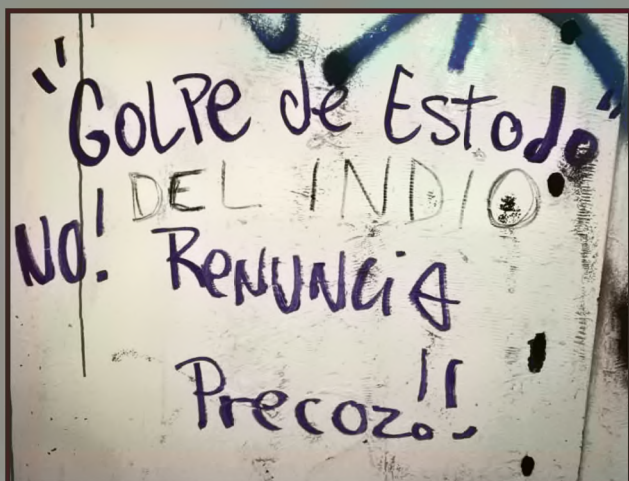 "GOLPe de Estado"
DEL INDIO.
NO! ReNUNCiA
Precoz!!